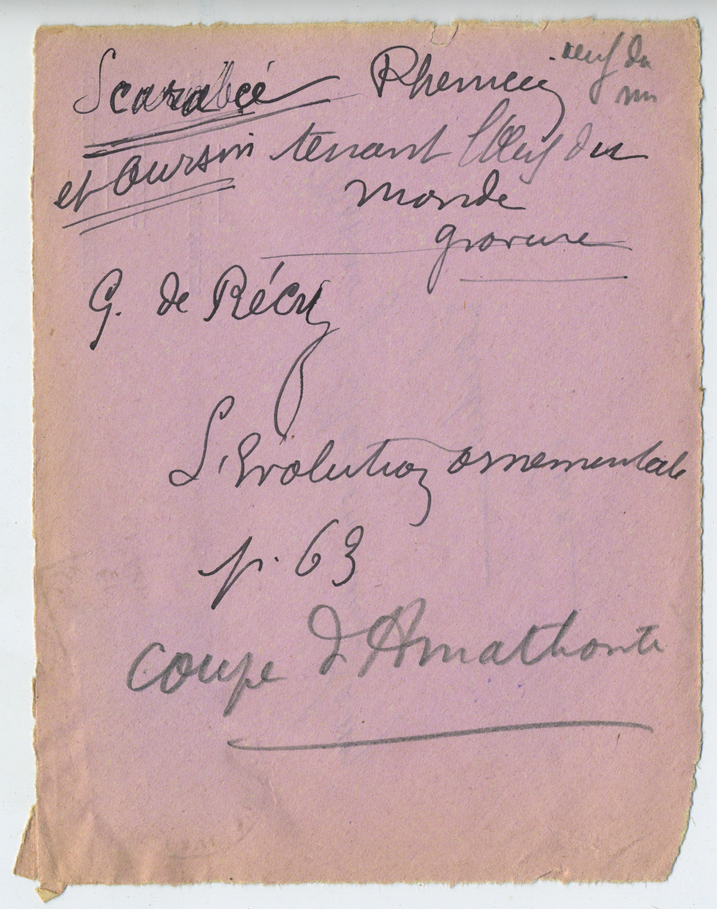 Scarabée Phemeer oeuf du
et Oursin tenant l'Œuf du
monde
gravure
G. de Récy
L'Evolution ornementale
p. 63
coupe d'Amathonte